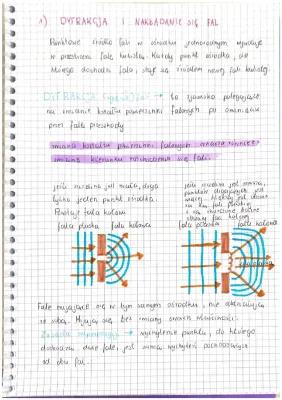 1) DYFRAKCJA I NAKŁADANIE SIĘ FAL
Punktowe źródło fali w ośrodku jednorodnym wywołuje
w przestrzeni falę kulistą. Każdy punkt ośrodka, do
którego dochodzi fala, staje się źródłem nowej fali kulistej.
DYFRAKCJA to zjawisko polegające
na zmianie kształtu powierzchni falowych po ominięciu
przez falę przeszkody
zmiana kształtu powierzchni falowych oznacza również
zmianę kierunku rozchodzenia się fali.
jeśli szczelina jest mała, drga
tylko jeden punkt ośrodka.
Powstaje fala kolista
fala płaska fala kolista
jeśli szczelina jest
punktów drgających jest
więcej
fala płaska
fala kolista
Fale mijające się w tym samym ośrodku, nie oddziałują
ze sobą. Mijają się bez zmiany swoich właściwości.
Zasada wychylenie punktu, do którego
dochodzą dwie fale, jest sumą wychyleń pochodzących
od obu fal